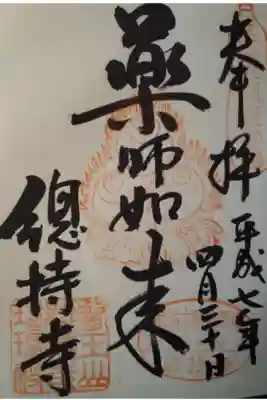 奉拝
平成七年
四月三十日
薬師如来
總持寺